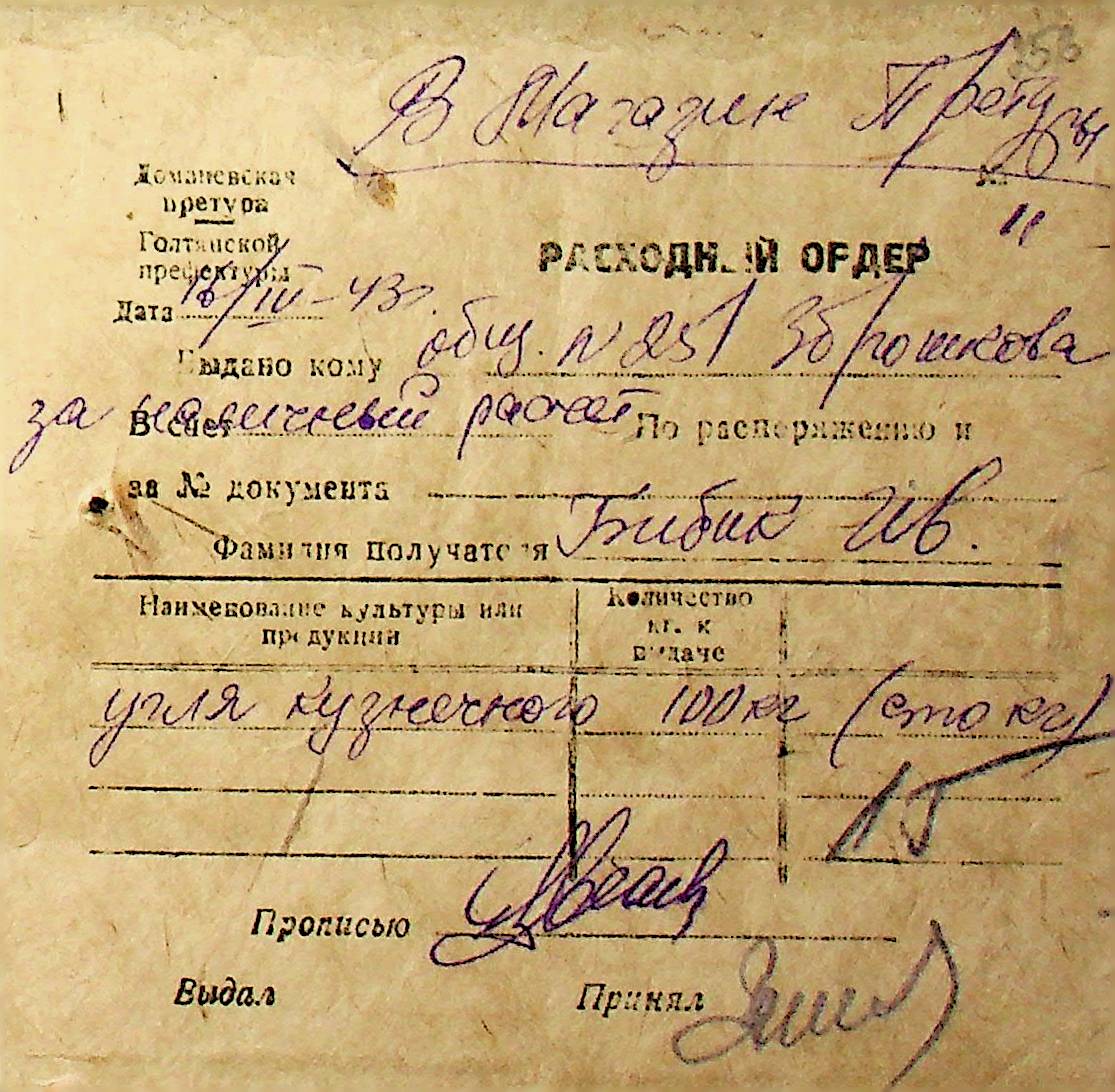 358
В Магазин Претуры
Доманевская
претура
№
Голтянской
префектуры
11
РАСХОДНЫЙ ОРДЕР
Дата 16/IV-43 г.
Выдано кому общ. N 251 Зброшкова
за наличный расчет
В счет По распоряжению и
за № документа
Фамилия получателя Бибик Ив.
Наименование культуры или
продукции
Количество
кг. к
выдаче
угля кузнечного 100 кг (сто кг)
Прописью
Выдал Принял